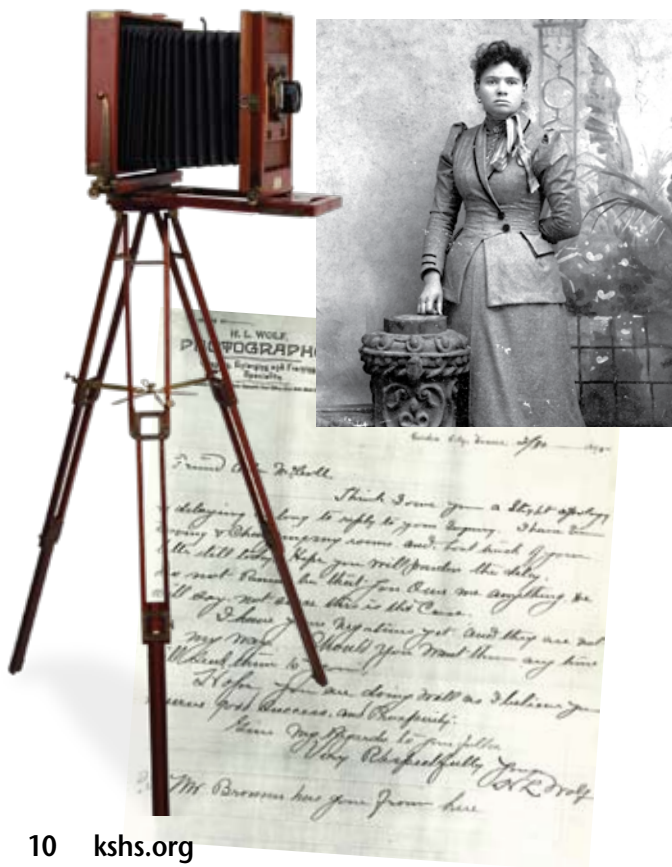 H. L. WOLF,
PHOTOGRAPH
Enlarging and Framing
Specialty
Friend
Think I owe you a Slight apology
delaying so long to reply to your Inquiry. I have been
moving & Changing rooms and lost track of your
till today. Hope you will pardon the delay.
not Remember that you Owe me anything
not sure this is the Case.
I have your Negatives yet and they are not
my way. Should you Want them any time
send them to you.
Hope you are doing Well as I believe you
good Success, and Prosperity.
Give my Regards to your father
Very Respectfully Yours
H L Wolf
Mr. Brown has gone from here
10 kshs.org